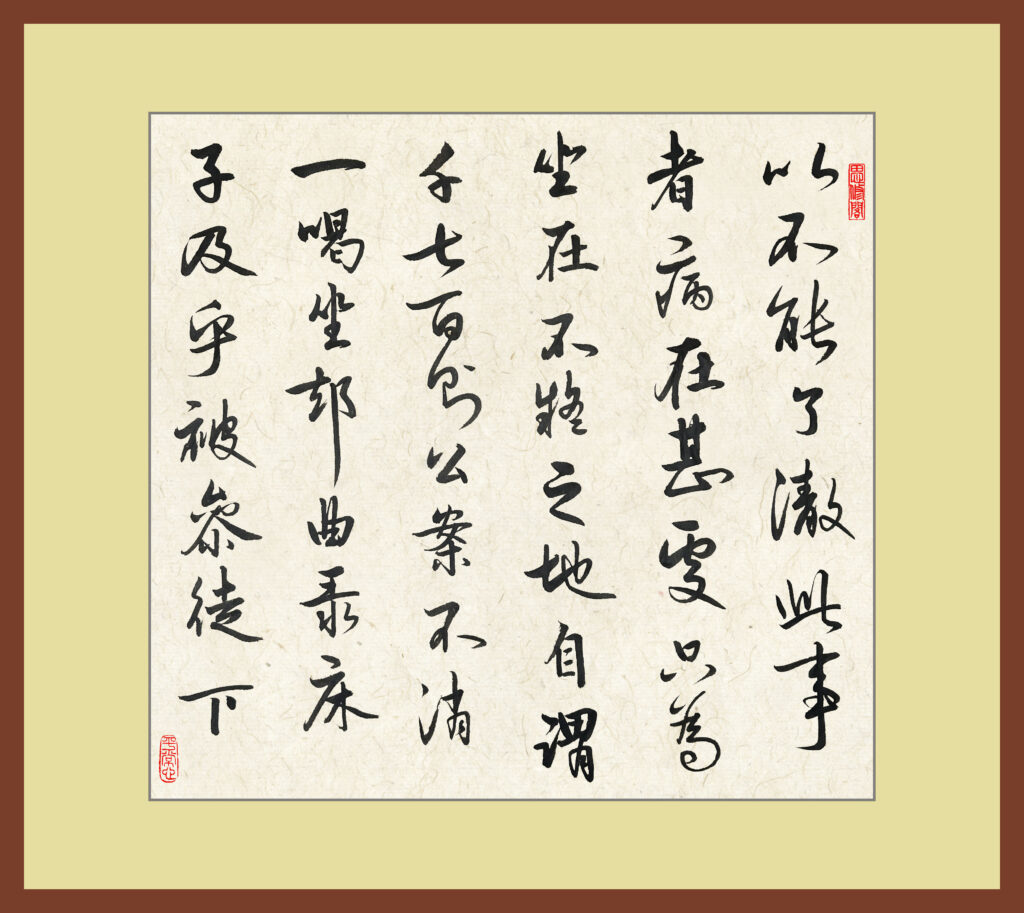 思修閣
以不能了澈此事
者病在甚處只為
坐在不疑之地自謂
千七百則公案不消
一喝坐却曲彔床
子及乎被參徒下
平常心